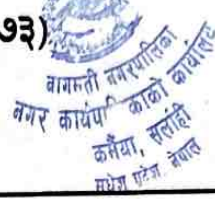 ७३)
बागमती नगरपालिका
नगर कार्यपालिकाको कार्यालय
कर्मैया, सर्लाही
मधेश प्रदेश, नेपाल